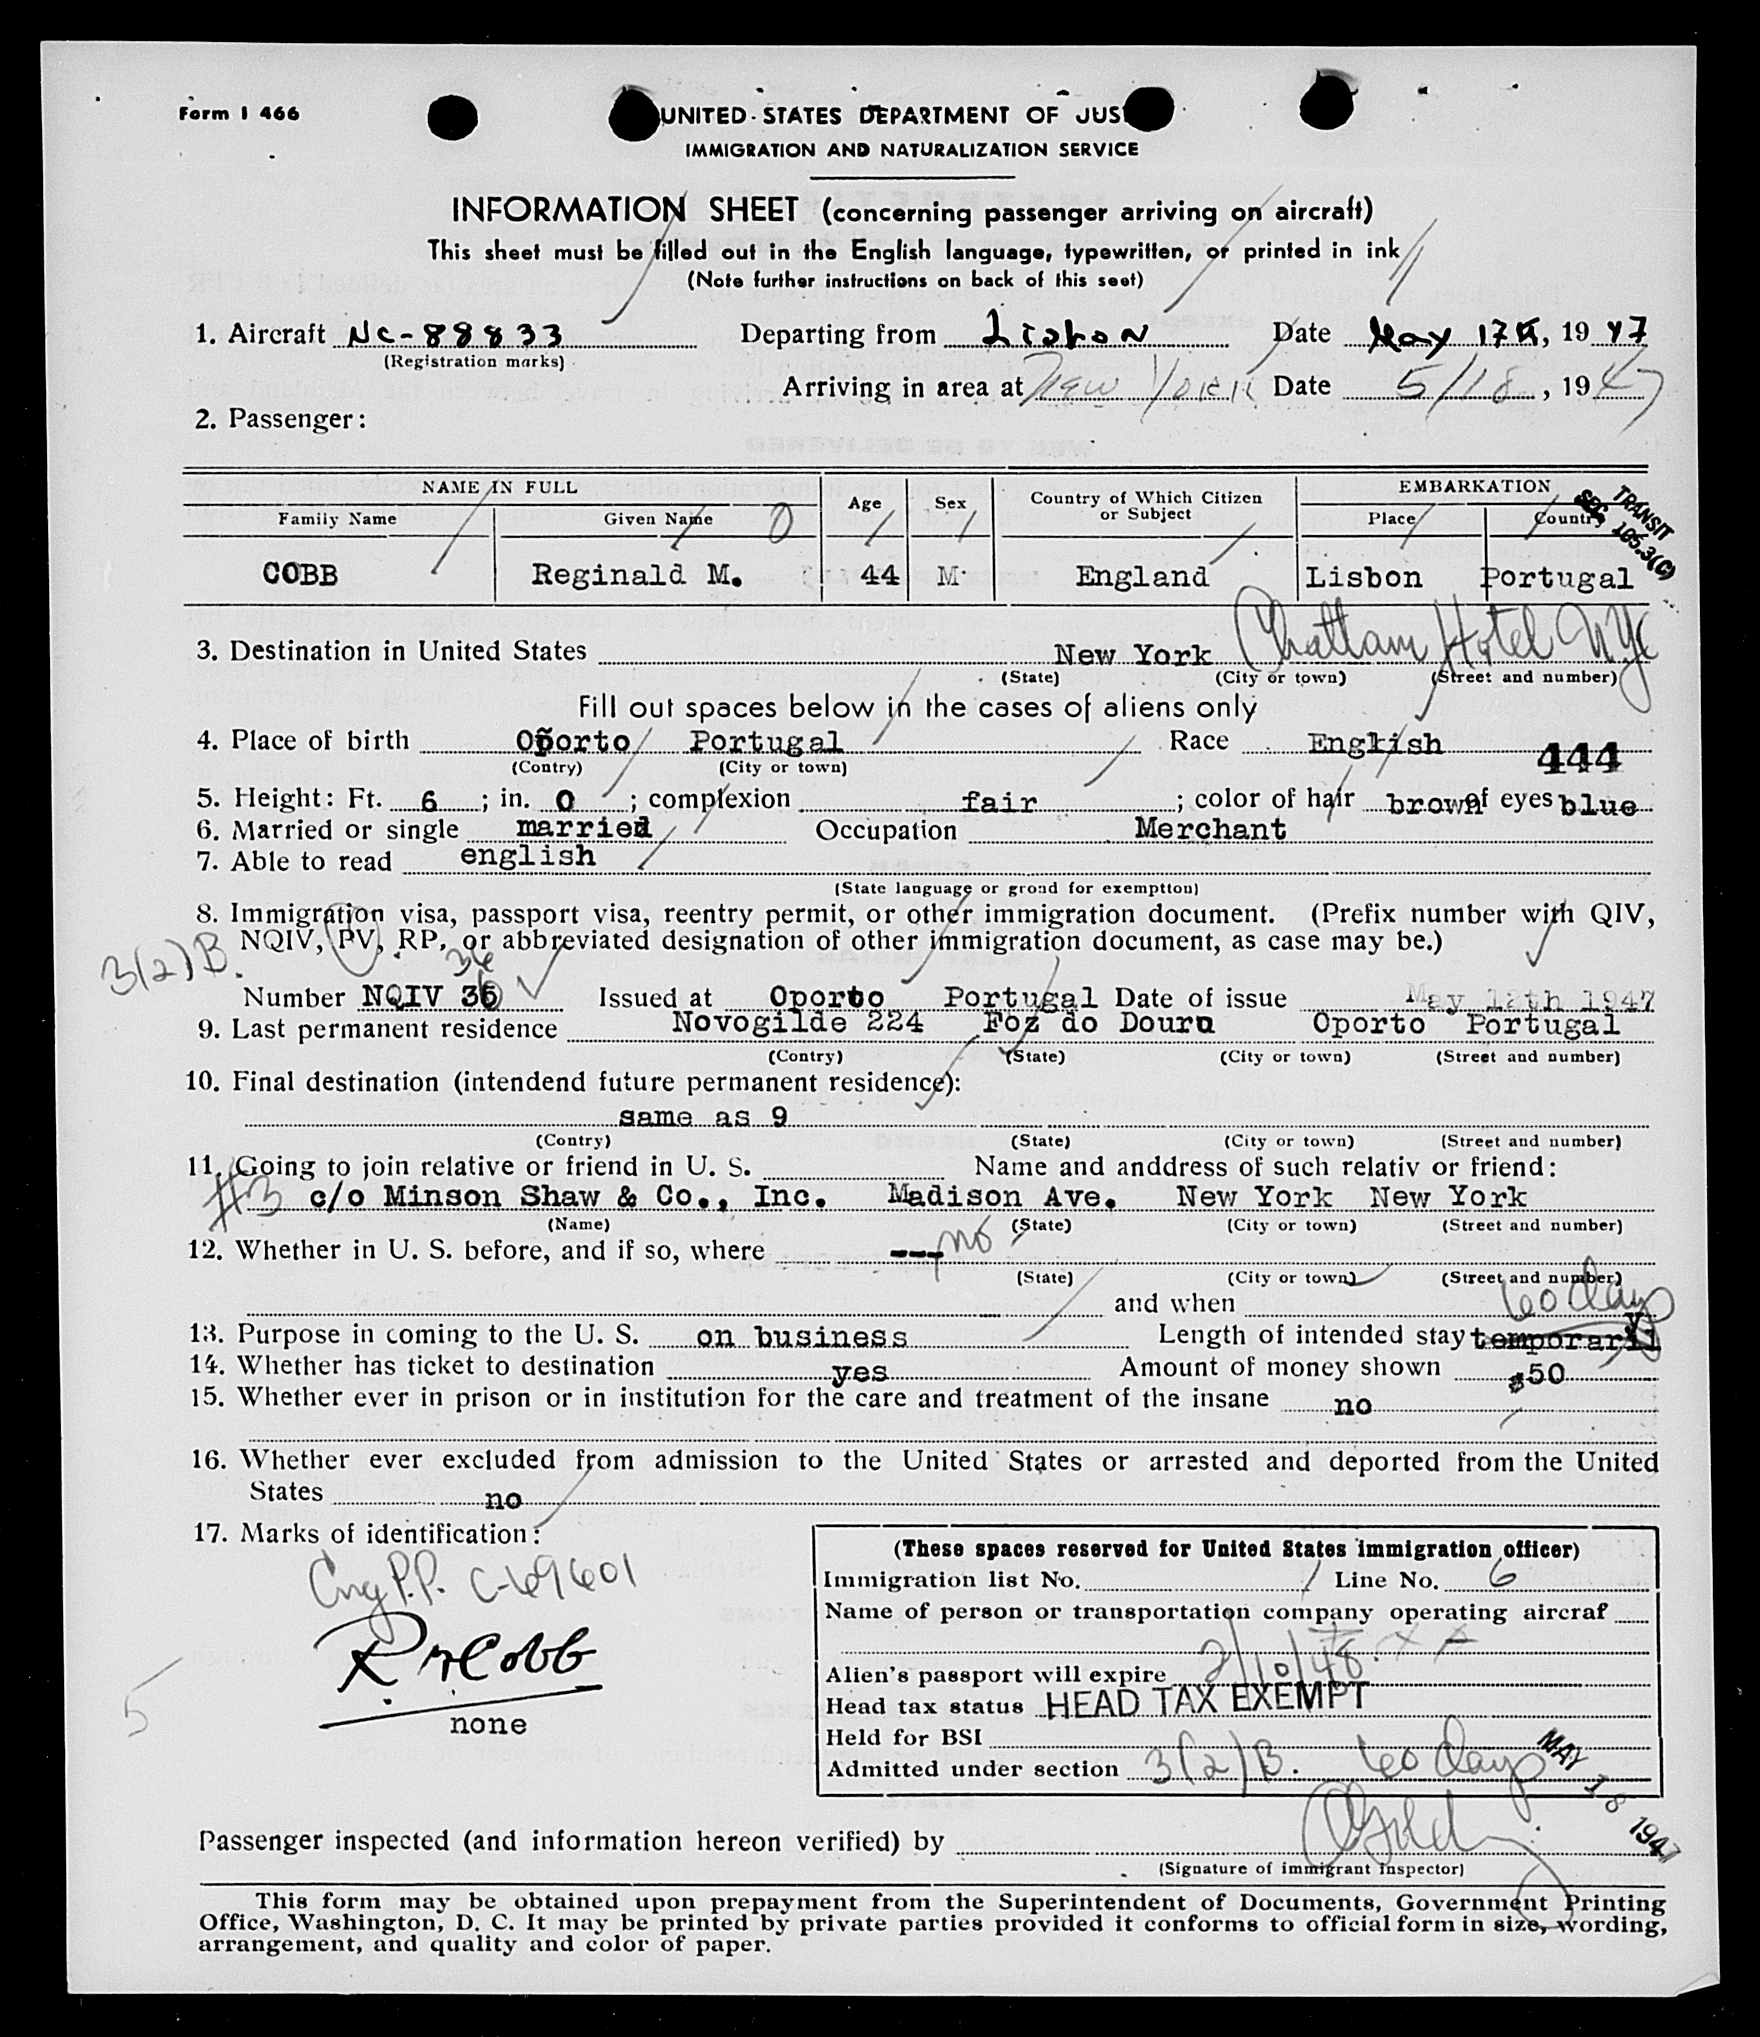 Form I 466
UNITED STATES DEPARTMENT OF JUS
IMMIGRATION AND NATURALIZATION SERVICE
INFORMATION SHEET (concerning passenger arriving on aircraft)
This sheet must be filled out in the English language, typewritten, or printed in ink
(Note further instructions on back of this seet)
1. Aircraft NC-88833 Departing from Lisbon Date May 17th, 1947
(Registration marks)
Arriving in area at New York Date 5/18, 1947
2. Passenger:
NAME IN FULL Age Sex Country of Which Citizen or Subject EMBARKATION
Family Name Given Name 0 Place Country
TRANSIT
SEC. 105.3(C)
COBB Reginald M. 44 M England Lisbon Portugal
3. Destination in United States New York Chatham Hotel NYC
(State) (City or town) (Street and number)
Fill out spaces below in the cases of aliens only
4. Place of birth Oporto Portugal Race English 444
(Contry) (City or town)
5. Height: Ft. 6; in. 0; complexion fair; color of hair brown of eyes blue
6. Married or single married Occupation Merchant
7. Able to read english
(State language or groud for exemptton)
8. Immigration visa, passport visa, reentry permit, or other immigration document. (Prefix number with QIV,
NQIV, PV, RP, or abbreviated designation of other immigration document, as case may be.)
3(2)B. 36
Number NQIV 36 Issued at Oporto Portugal Date of issue May 12th 1947
9. Last permanent residence Novogilde 224 Foz do Douro Oporto Portugal
(Contry) (State) (City or town) (Street and number)
10. Final destination (intendend future permanent residence):
same as 9
(Contry) (State) (City or town) (Street and number)
11. Going to join relative or friend in U. S. Name and anddress of such relativ or friend:
#3 c/o Minson Shaw & Co., Inc. Madison Ave. New York New York
(Name) (State) (City or town) (Street and number)
12. Whether in U. S. before, and if so, where --- no
(State) (City or town) (Street and number)
and when 60 days
13. Purpose in coming to the U. S. on business Length of intended stay temporary
14. Whether has ticket to destination yes Amount of money shown $50
15. Whether ever in prison or in institution for the care and treatment of the insane no
16. Whether ever excluded from admission to the United States or arrested and deported from the United
States no
17. Marks of identification:
P.P. C-69601
R M Cobb
none
5
(These spaces reserved for United States immigration officer)
Immigration list No. 1 Line No. 6
Name of person or transportation company operating aircraf
Alien's passport will expire 2/10/48
Head tax status HEAD TAX EXEMPT
Held for BSI
Admitted under section 3(2)B. 60 days
MAY 18 1947
Passenger inspected (and information hereon verified) by
(Signature of immigrant inspector)
This form may be obtained upon prepayment from the Superintendent of Documents, Government Printing
Office, Washington, D. C. It may be printed by private parties provided it conforms to official form in size, wording,
arrangement, and quality and color of paper.